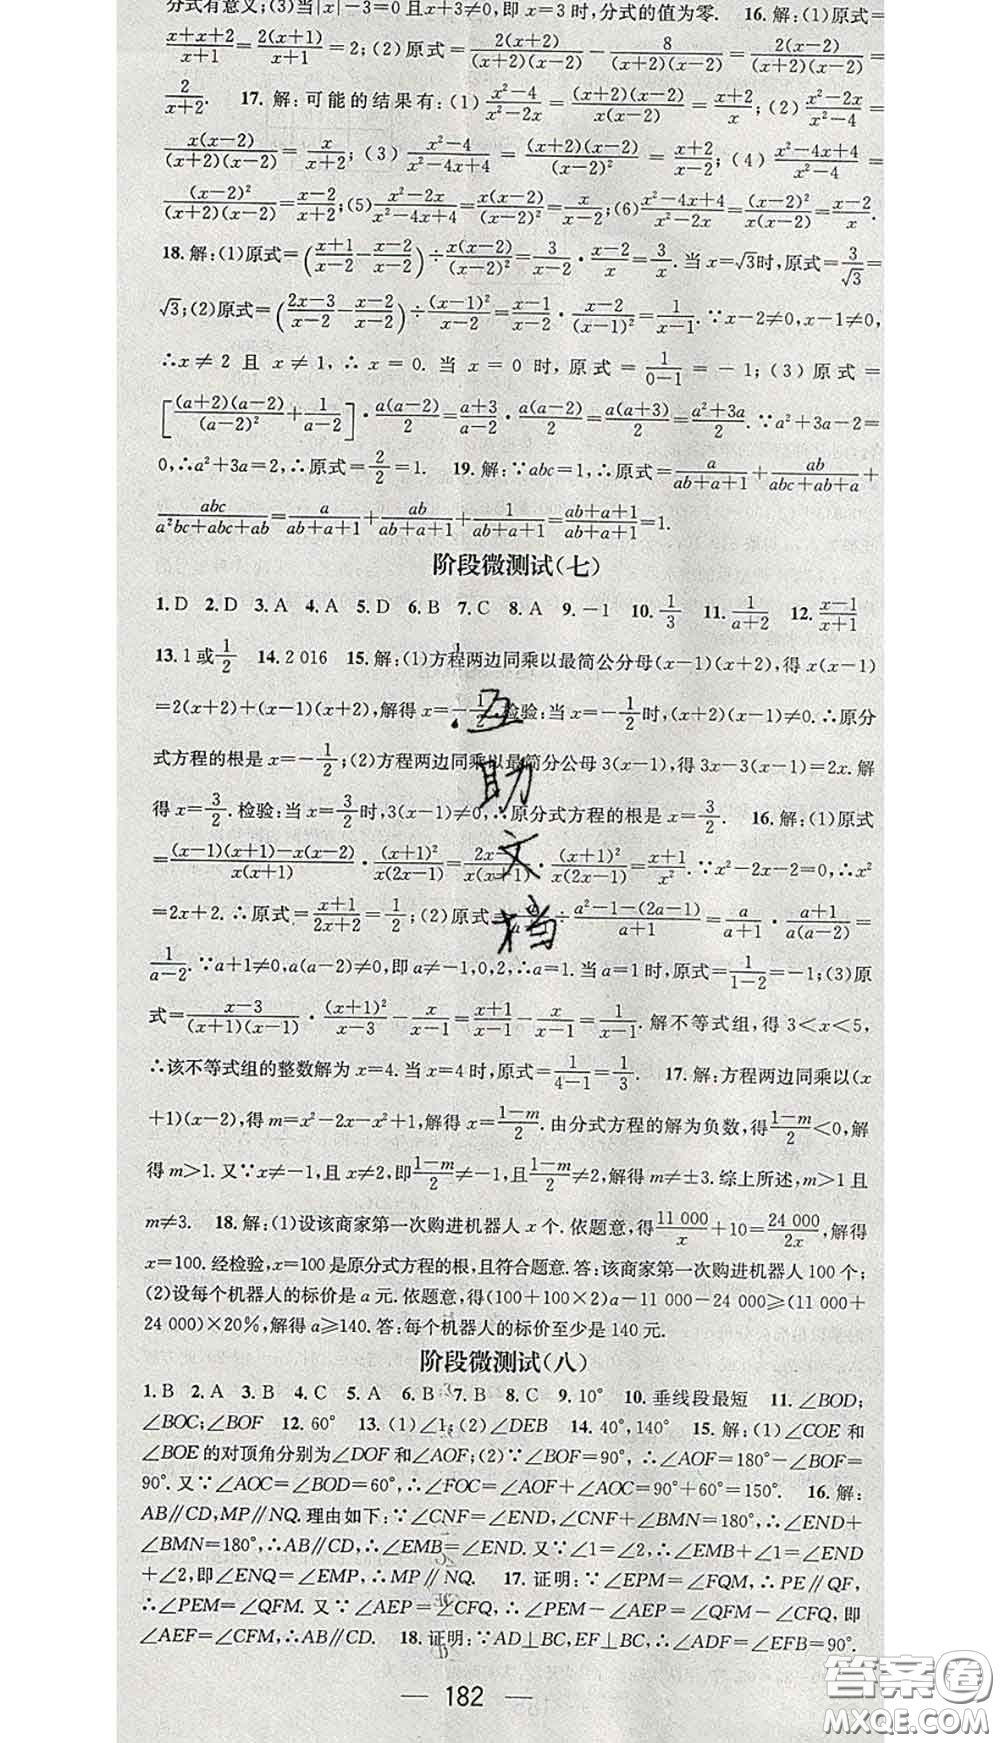 分式有意义;(3)当|x|-3=0且x+3≠0,即x=3时,分式的值为零. 16. 解:(1)原式=
(x+x+2)/(x+1)=2(x+1)/(x+1)=2;(2)原式=2(x+2)/((x+2)(x-2))-8/((x+2)(x-2))=2(x-2)/((x+2)(x-2))=
2/(x+2). 17. 解:可能的结果有:(1)(x²-4)/(x²-2x)=(x+2)(x-2)/(x(x-2))=(x+2)/x;(2)(x²-2x)/(x²-4)=
x(x-2)/((x+2)(x-2))=x/(x+2);(3)(x²-4)/(x²-4x+4)=(x+2)(x-2)/(x-2)²=(x+2)/(x-2);(4)(x²-4x+4)/(x²-4)=
(x-2)²/((x+2)(x-2))=(x-2)/(x+2);(5)(x²-2x)/(x²-4x+4)=x(x-2)/(x-2)²=x/(x-2);(6)(x²-4x+4)/(x²-2x)=(x-2)²/(x(x-2))=(x-2)/x.
18. 解:(1)原式=((x+1)/(x-2)-(x-2)/(x-2))÷x(x-2)/(x-2)²=3/(x-2)·(x-2)/x=3/x.当x=√3时,原式=3/√3=
√3;(2)原式=((2x-3)/(x-2)-(x-2)/(x-2))÷(x-1)²/(x-2)=(x-1)/(x-2)·(x-2)/(x-1)²=1/(x-1).∵x-2≠0,x-1≠0,
∴x≠2且x≠1,∴x=0.当x=0时,原式=1/(0-1)=-1;(3)原式=
[(a+2)(a-2)/(a-2)²+1/(a-2)]·a(a-2)/2=(a+3)/(a-2)·a(a-2)/2=a(a+3)/2=(a²+3a)/2.∵a²+3a-2=
0,∴a²+3a=2,∴原式=2/2=1. 19. 解:∵abc=1,∴原式=a/(ab+a+1)+ab/(abc+ab+a)+
abc/(a²bc+abc+ab)=a/(ab+a+1)+ab/(ab+a+1)+1/(ab+a+1)=(ab+a+1)/(ab+a+1)=1.
阶段微测试(七)
1. D 2. D 3. A 4. A 5. D 6. B 7. C 8. A 9. -1 10. 1/3 11. 1/(a+2) 12. (x-1)/(x+1)
13. 1或1/2 14. 2 016 15. 解:(1)方程两边同乘以最简公分母(x-1)(x+2),得x(x-1)
=2(x+2)+(x-1)(x+2),解得x=-1/2.检验:当x=-1/2时,(x+2)(x-1)≠0.∴原分
式方程的根是x=-1/2;(2)方程两边同乘以最简分公母3(x-1),得3x-3(x-1)=2x.解
得x=3/2.检验:当x=3/2时,3(x-1)≠0,∴原分式方程的根是x=3/2. 16. 解:(1)原式
=((x-1)(x+1)-x(x-2))/(x(x+1))·(x+1)²/(x(2x-1))=(2x-)/(x(x+1))·(x+1)²/(x(2x-1))=(x+1)/x².∵x²-2x-2=0,∴x²
=2x+2.∴原式=(x+1)/(2x+2)=1/2;(2)原式=÷(a²-1-(2a-1))/(a+1)=a/(a+1)·(a+1)/(a(a-2))=
1/(a-2).∵a+1≠0,a(a-2)≠0,即a≠-1,0,2,∴a=1.当a=1时,原式=1/(1-2)=-1;(3)原
式=(x-3)/((x+1)(x-1))·(x+1)²/(x-3)-x/(x-1)=(x+1)/(x-1)-x/(x-1)=1/(x-1).解不等式组,得3<x<5,
∴该不等式组的整数解为x=4.当x=4时,原式=1/(4-1)=1/3. 17. 解:方程两边同乘以(x
+1)(x-2),得m=x²-2x-x²+1,解得x=(1-m)/2.由分式方程的解为负数,得(1-m)/2<0,解
得m>1.又∵x≠-1,且x≠2,即(1-m)/2≠-1,且(1-m)/2≠2,解得m≠±3.综上所述,m>1且
m≠3. 18. 解:(1)设该商家第一次购进机器人x个.依题意,得11 000/x+10=24 000/2x,解得
x=100.经检验,x=100是原分式方程的根,且符合题意.答:该商家第一次购进机器人100个;
(2)设每个机器人的标价是a元.依题意,得(100+100×2)a-11 000-24 000≥(11 000+
24 000)×20%,解得a≥140.答:每个机器人的标价至少是140元.
阶段微测试(八)
1. B 2. A 3. B 4. C 5. A 6. B 7. B 8. C 9. 10° 10. 垂线段最短 11. ∠BOD;
∠BOC;∠BOF 12. 60° 13. (1)∠1;(2)∠DEB 14. 40°,140° 15. 解:(1)∠COE和
∠BOE的对顶角分别为∠DOF和∠AOF;(2)∵∠BOF=90°,∴∠AOF=180°-∠BOF=
90°.又∵∠AOC=∠BOD=60°,∴∠FOC=∠AOF+∠AOC=90°+60°=150°. 16. 解:
AB∥CD,MP∥NQ.理由如下:∵∠CNF=∠END,∠CNF+∠BMN=180°,∴∠END+
∠BMN=180°,∴AB∥CD,∴∠EMB=∠END.又∵∠1=∠2,∴∠EMB+∠1=∠END
+∠2,即∠ENQ=∠EMP,∴MP∥NQ. 17. 证明:∵∠EPM=∠FQM,∴PE∥QF,
∴∠PEM=∠QFM.又∵∠AEP=∠CFQ,∴∠PEM-∠AEP=∠QFM-∠CFQ,即
∠AEF=∠CFM,∴AB∥CD. 18. 证明:∵AD⊥BC,EF⊥BC,∴∠ADF=∠EFB=90°.
— 182 —
互助文档
答案圈
MXQE.COM